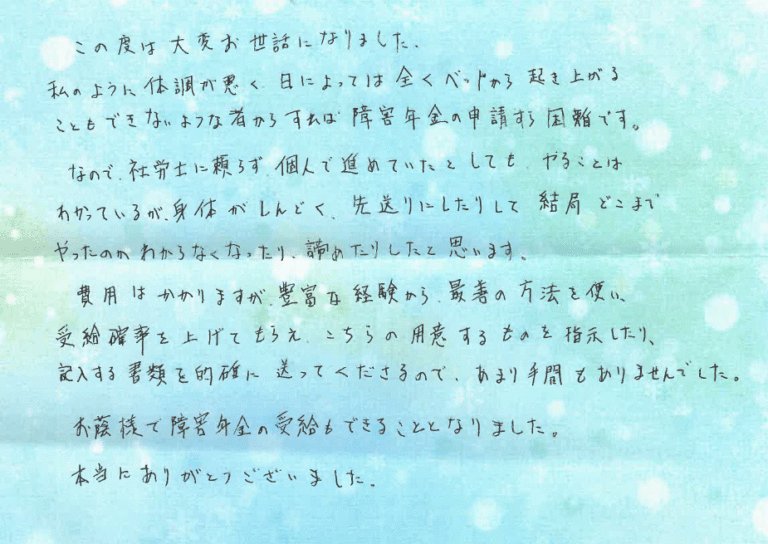 この度は大変お世話になりました。
私のように体調が悪く、日によっては全くベッドから起き上がる
こともできないような者からすれば障害年金の申請すら困難です。
なので、社労士に頼らず、個人で進めていたとしても、やることは
わかっているが、身体がしんどく、先送りにしたりして結局どこまで
やったのかわからなくなったり、諦めたりしたと思います。
費用はかかりますが、豊富な経験から、最善の方法を使い、
受給確率を上げてもらえ、こちらの用意するものを指示したり、
記入する書類を的確に送ってくださるので、あまり手間もありませんでした。
お蔭様で障害年金の受給もできることとなりました。
本当にありがとうございました。